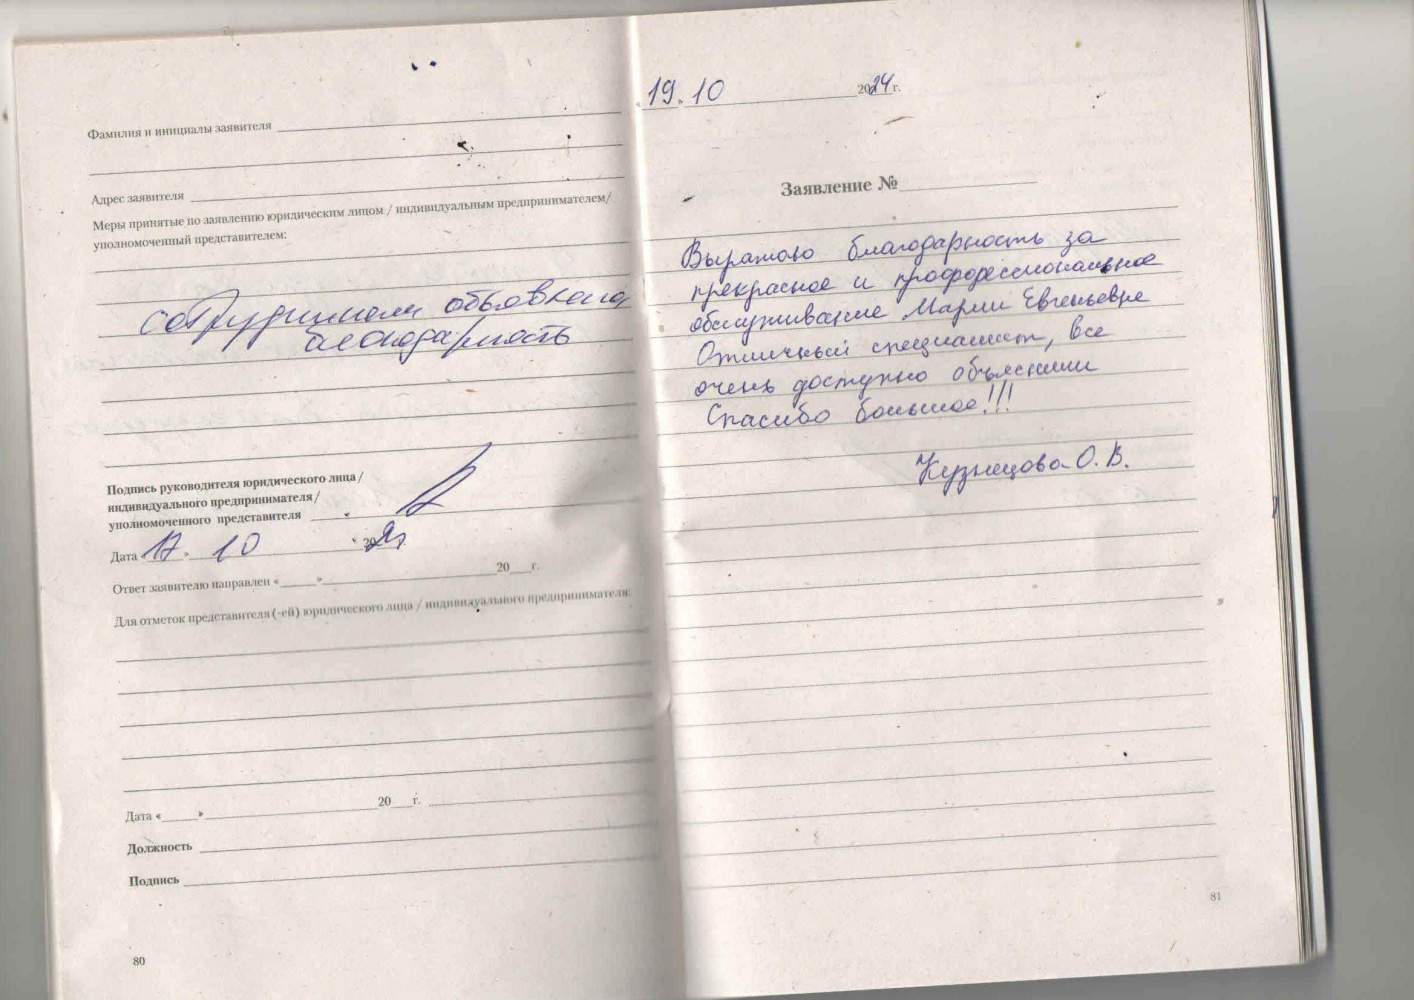 Фамилия и инициалы заявителя
Адрес заявителя
Меры принятые по заявлению юридическим лицом / индивидуальным предпринимателем/
уполномоченный представителем:
сотрудникам объявлена
благодарность
Подпись руководителя юридического лица/
индивидуального предпринимателя/
уполномоченного представителя
Дата «17» 10 20
Ответ заявителю направлен «    »    20    г.
Для отметок представителя (-ей) юридического лица / индивидуального предпринимателя:
Дата «    »    20    г.
Должность
Подпись
80
«19» 10 2024 г.
Заявление №
Выражаю благодарность за
прекрасное и профодессиональное
обслуживание Марии Евгеньевре
Отличный специалист, все
очень доступно объяснили
Спасибо большое!!!
Кузнецова О. В.
81